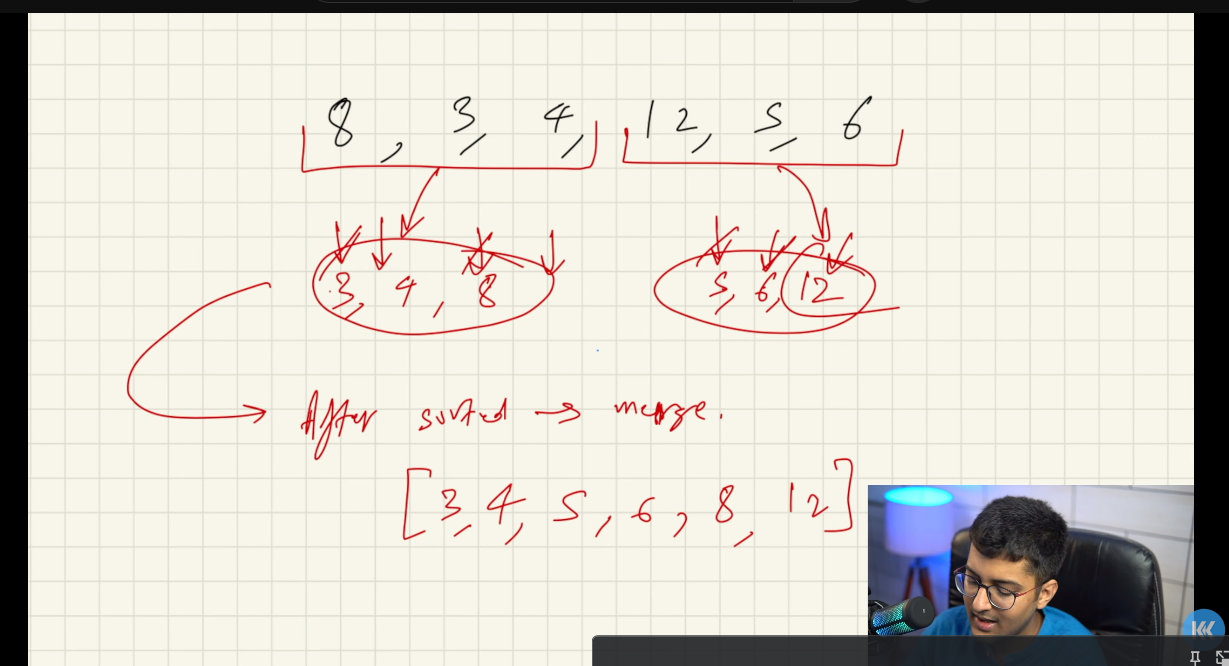 8, 3, 4, 12, 5, 6
3, 4, 8 5, 6, 12
After sorted → merge.
[3, 4, 5, 6, 8, 12]